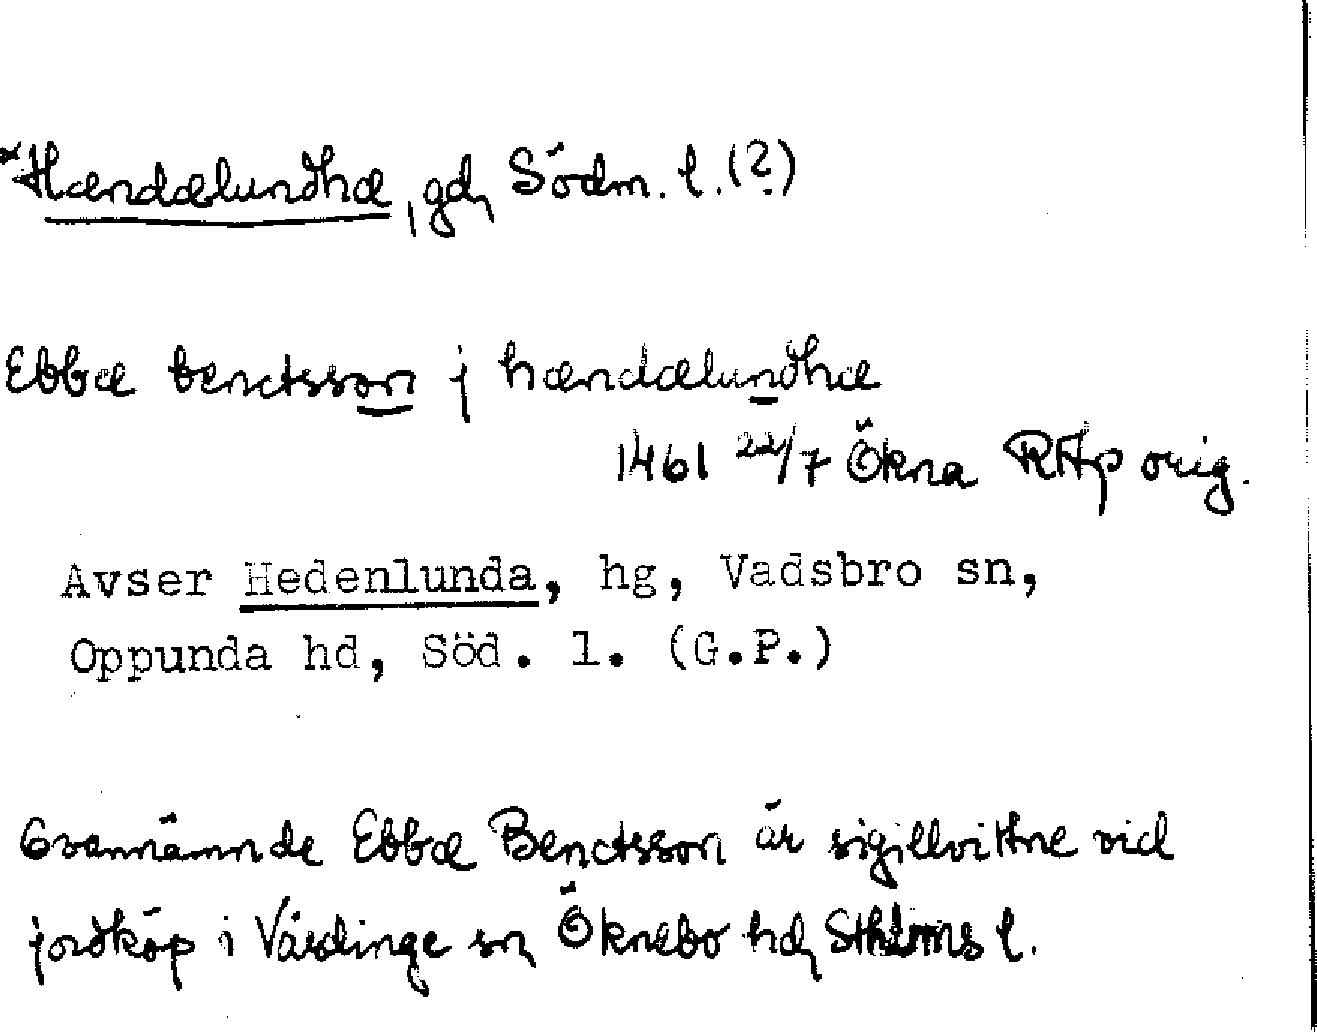 *Hændælundhæ, gd, Södm. l. (?)
Ebbæ benctsson j hændælundhæ
1461 22/7 Ökna RAp orig.
Avser Hedenlunda, hg, Vadsbro sn,
Oppunda hd, Söd. l. (G.P.)
Ovannämnde Ebbæ Benctsson är sigillvittne vid
jordköp i Vårdinge sn Öknebo hd, Sthlms l.